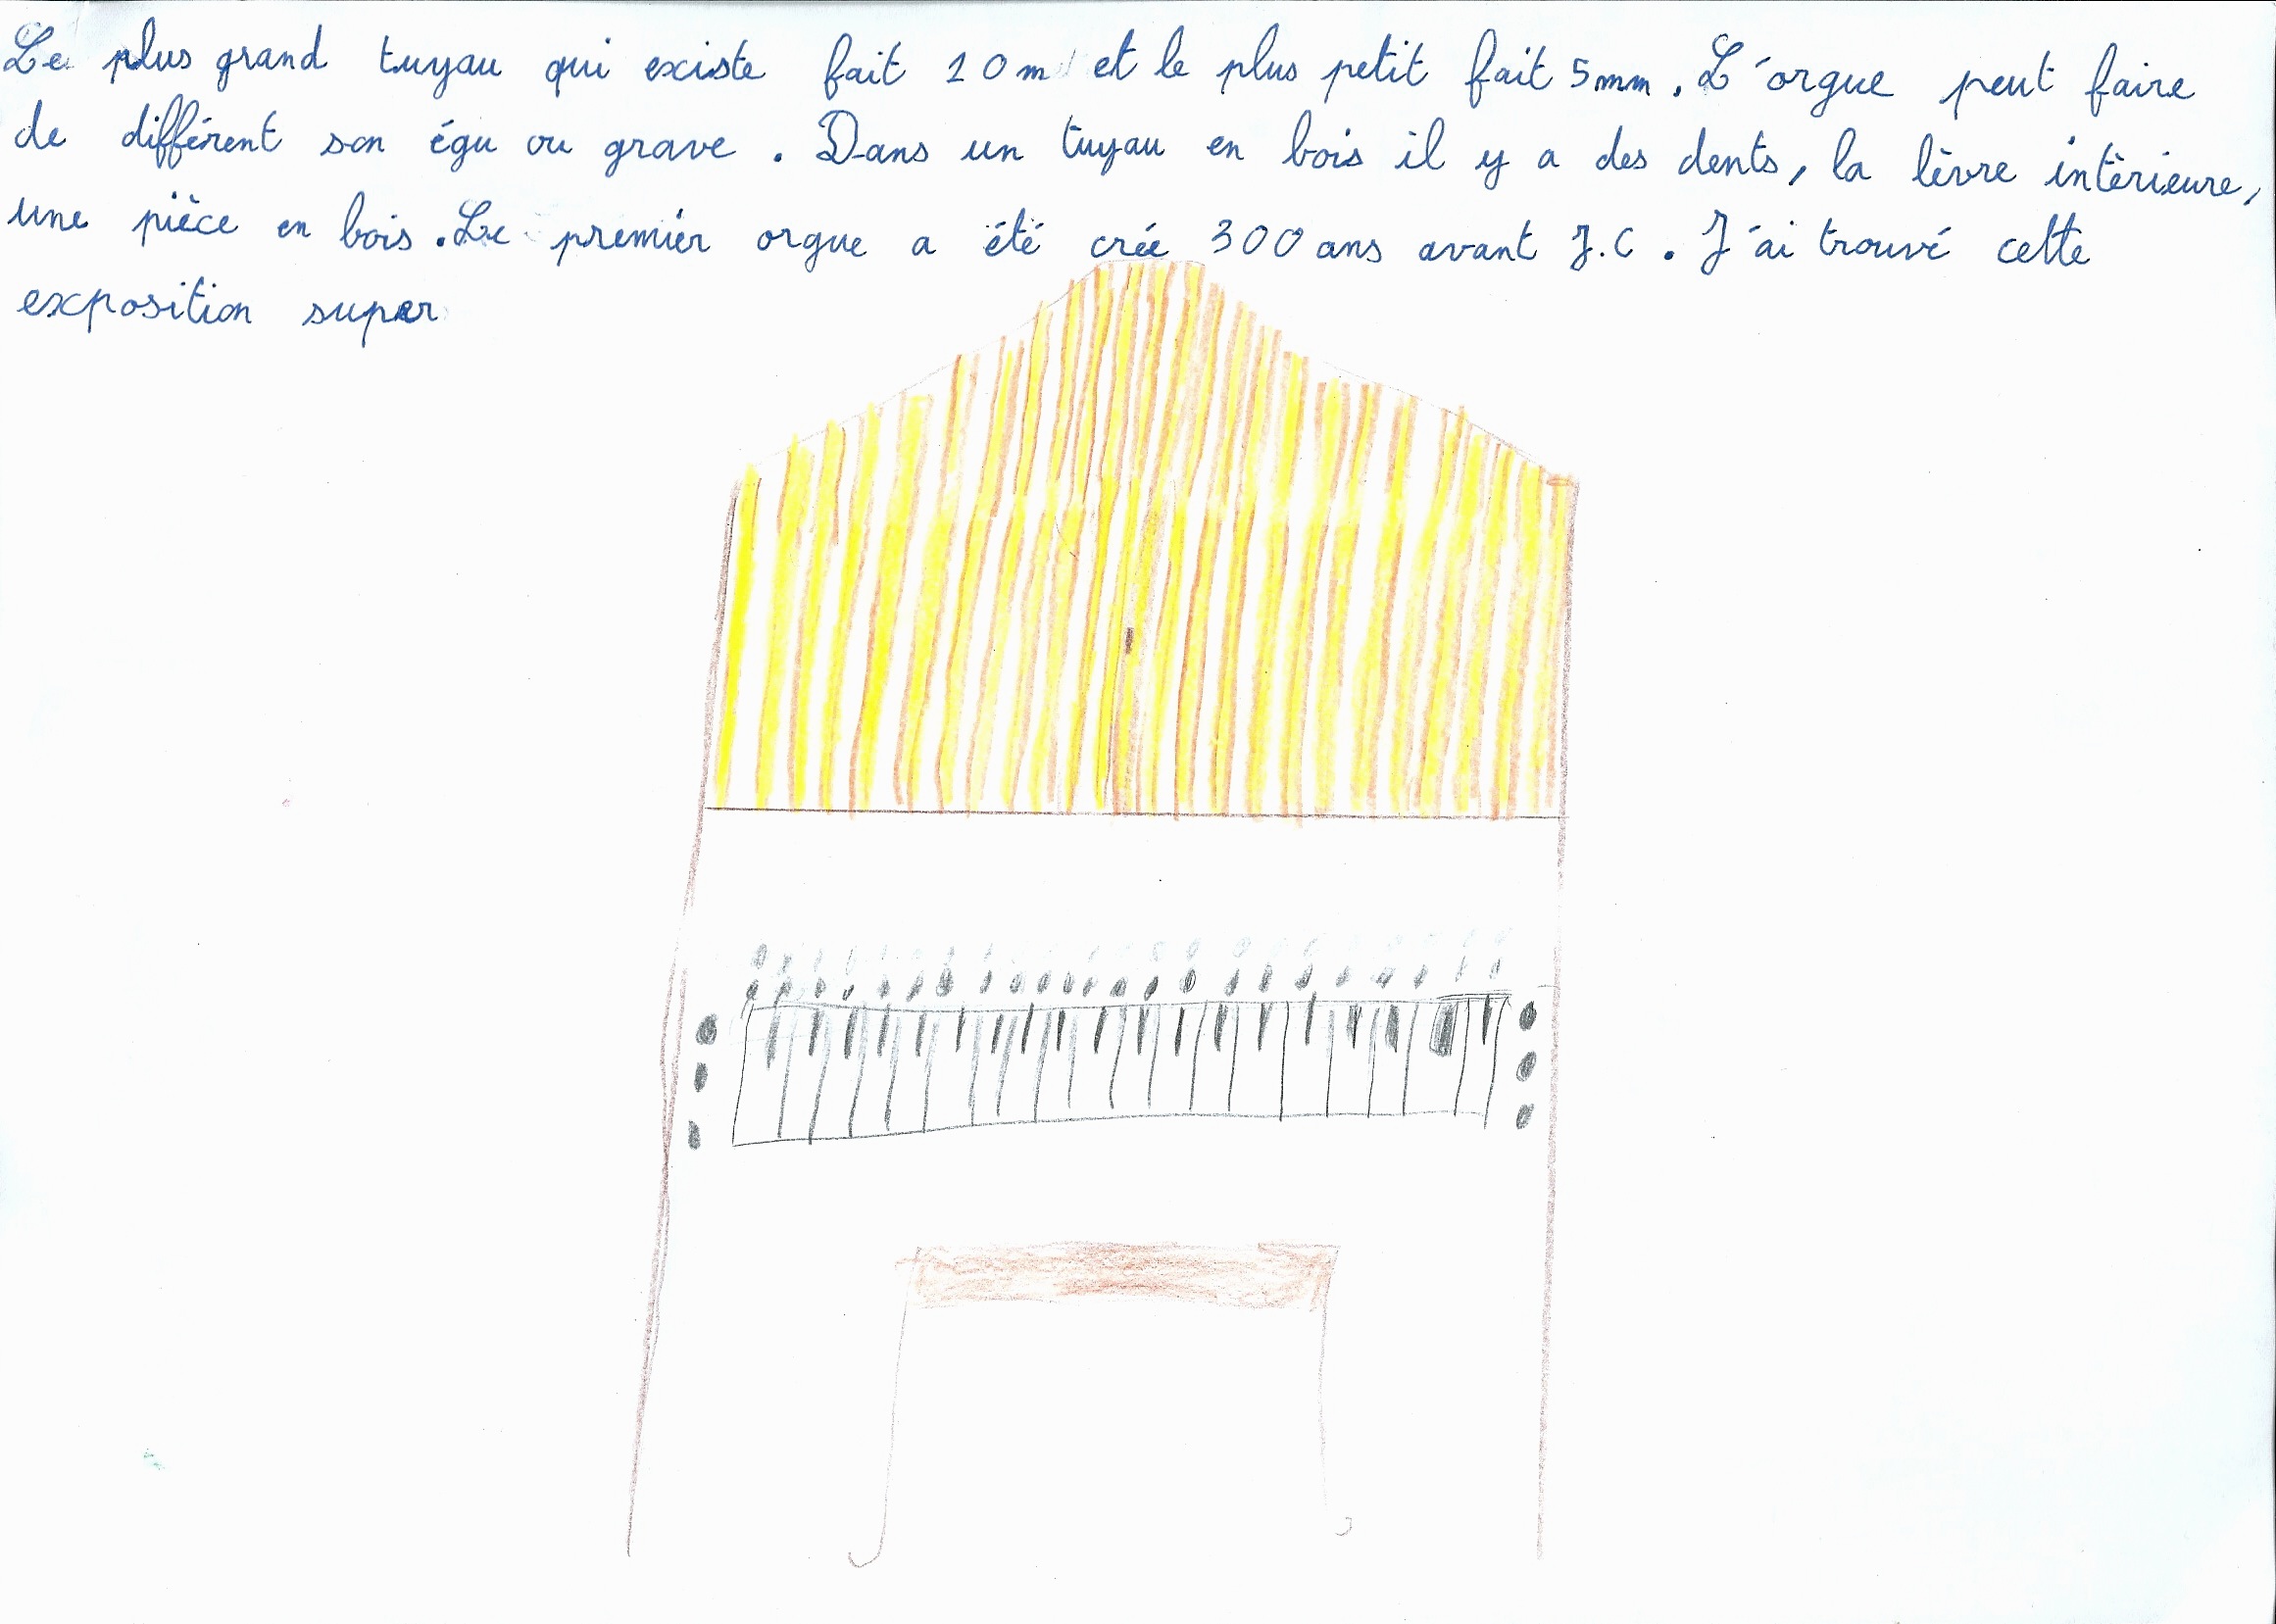 Le plus grand tuyau qui existe fait 10m et le plus petit fait 5mm. L'orgue peut faire
de différent son égu ou grave. Dans un tuyau en bois il y a des dents, la lèvre intèrieure,
une pièce en bois. Le premier orgue a été crée 300 ans avant J.C. J'ai trouvé cette
exposition super